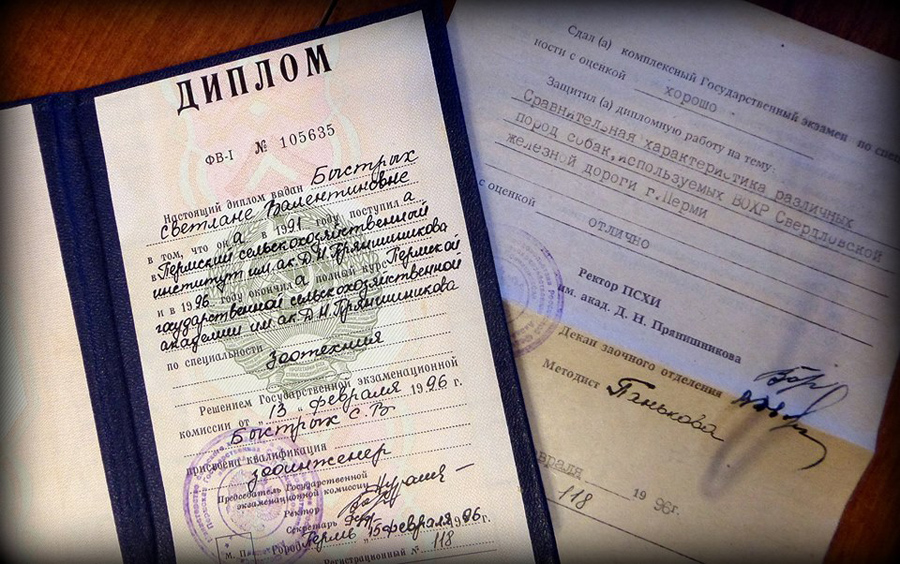 ДИПЛОМ
ФВ-I № 105635
Настоящий диплом выдан Быстрых
Светлане Валентиновне
в том, что он а в 1991 году поступил а
в Пермский сельскохозяйственный
институт им. ак. Д.Н. Прянишникова
и в 1996 году окончил а полный курс Пермской
государственной сельскохозяйственной
академии им. ак. Д.Н. Прянишникова
по специальности зоотехния
Решением Государственной экзаменационной
комиссии от "13" февраля 1996 г.
Быстрых С.В.
присвоена квалификация
зооинженер
Председатель Государственной
экзаменационной комиссии
Ректор
Секретарь
М. П.
Город Пермь, 15 февраля 1996 г.
Регистрационный № 118
Сдал (а) комплексный Государственный экзамен по
ности с оценкой хорошо
Защитил (а) дипломную работу на тему.
Сравнительная характеристика различных
пород собак, используемых ВОХР Свердловской
железной дороги г.Перми
с оценкой отлично
Ректор ПСХИ
им. акад. Д. Н. Прянишникова
Декан заочного отделения
Методист Панькова
враля 1996г.
118